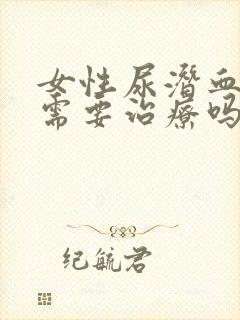 女性尿潜血
需要治疗吗
纪毓君